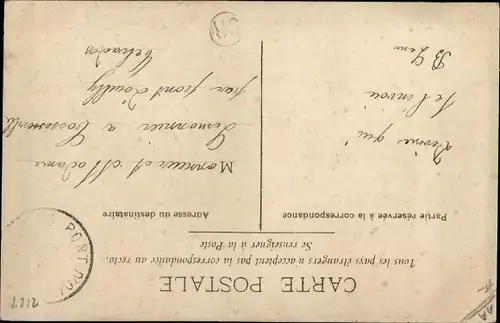 CARTE POSTALE
Tous les pays étrangers n'acceptent pas la correspondance au recto.
Se renseigner à la Poste
Partie réservée à la correspondance
Adresse du destinataire
Devine qui
Te l'envoie
Monsieur et Madame
Limonnier a
par pont d'ouilly
Calvados
PONT D'OU
2212